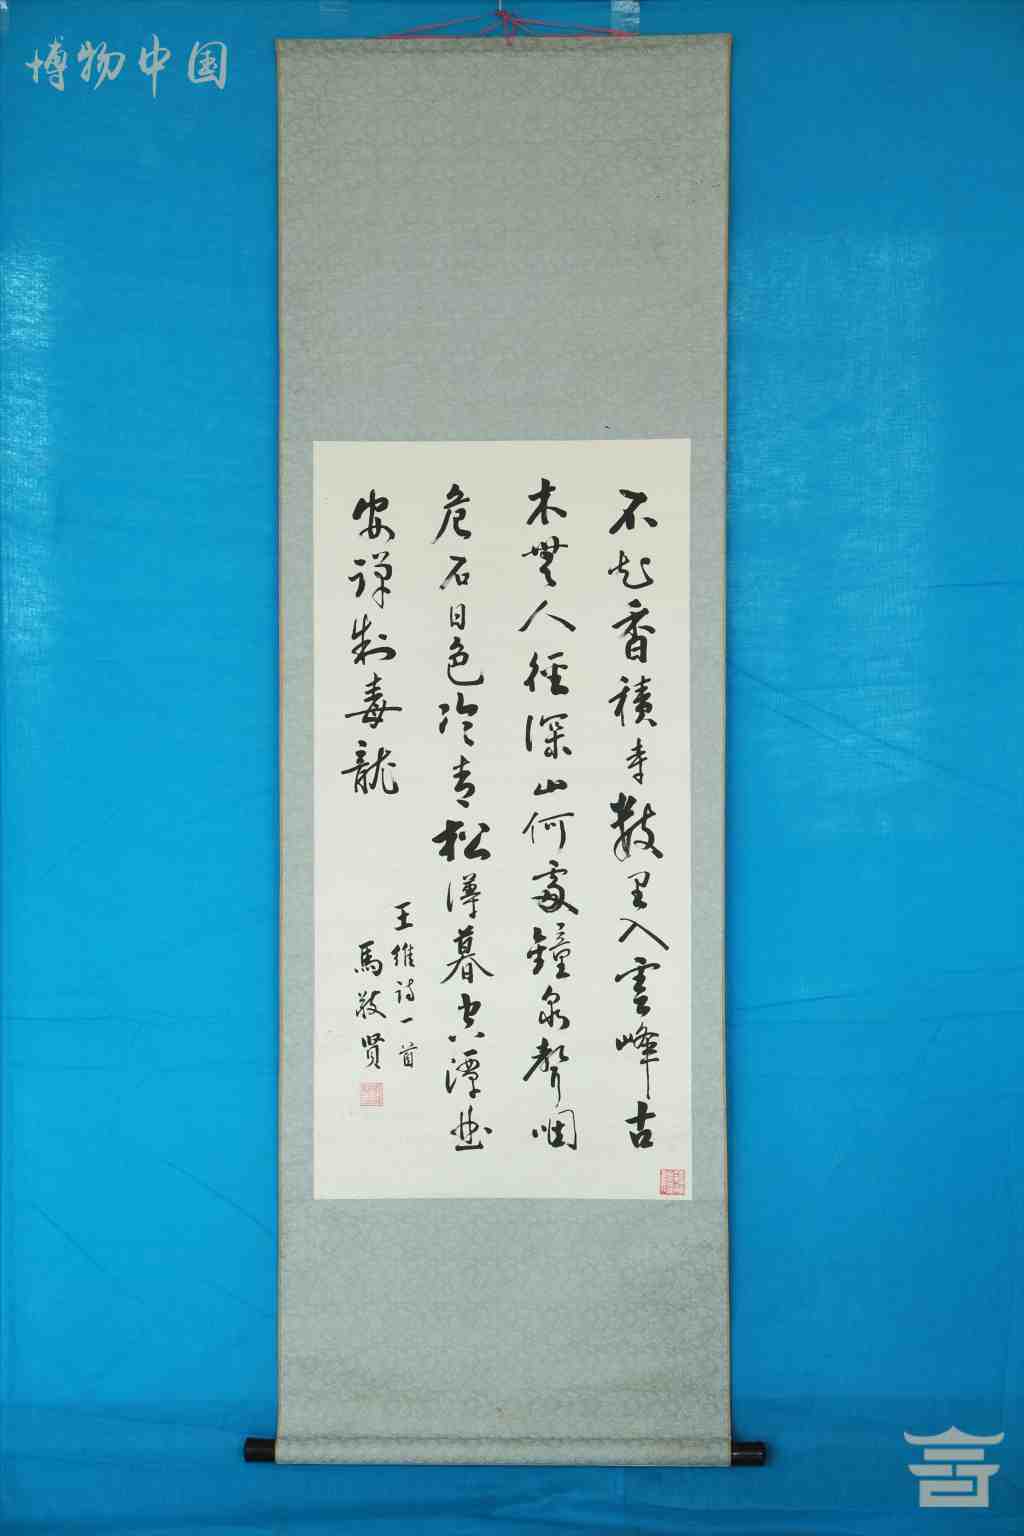 博物中国
不知香積寺數里入雲峰古
木無人徑深山何處鐘泉聲咽
危石日色冷青松薄暮空潭曲
安禪制毒龍
王維詩一首
馬敬贤